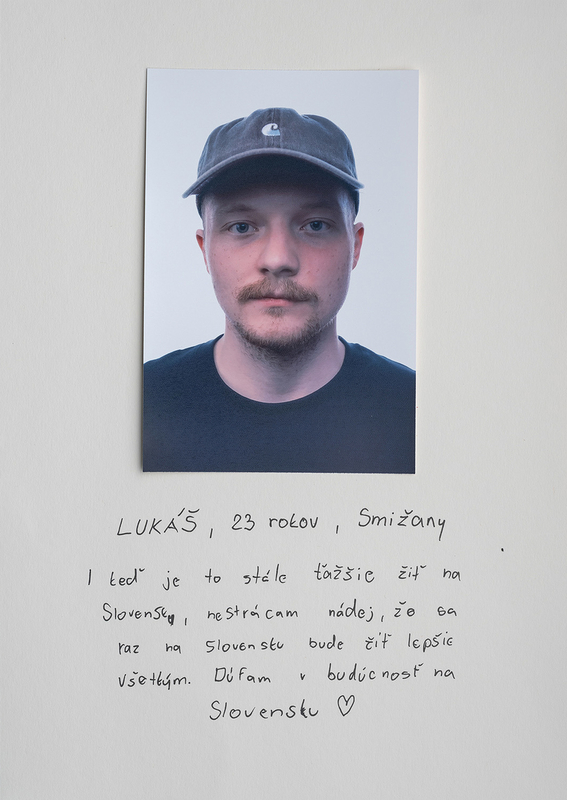 LUKÁŠ, 23 rokov, Smižany
I keď je to stále ťažšie žiť na
Slovensku, nestrácam nádej, že sa
raz na Slovensku bude žiť lepšie
všetkým. Dúfam v budúcnosť na
Slovensku ♡